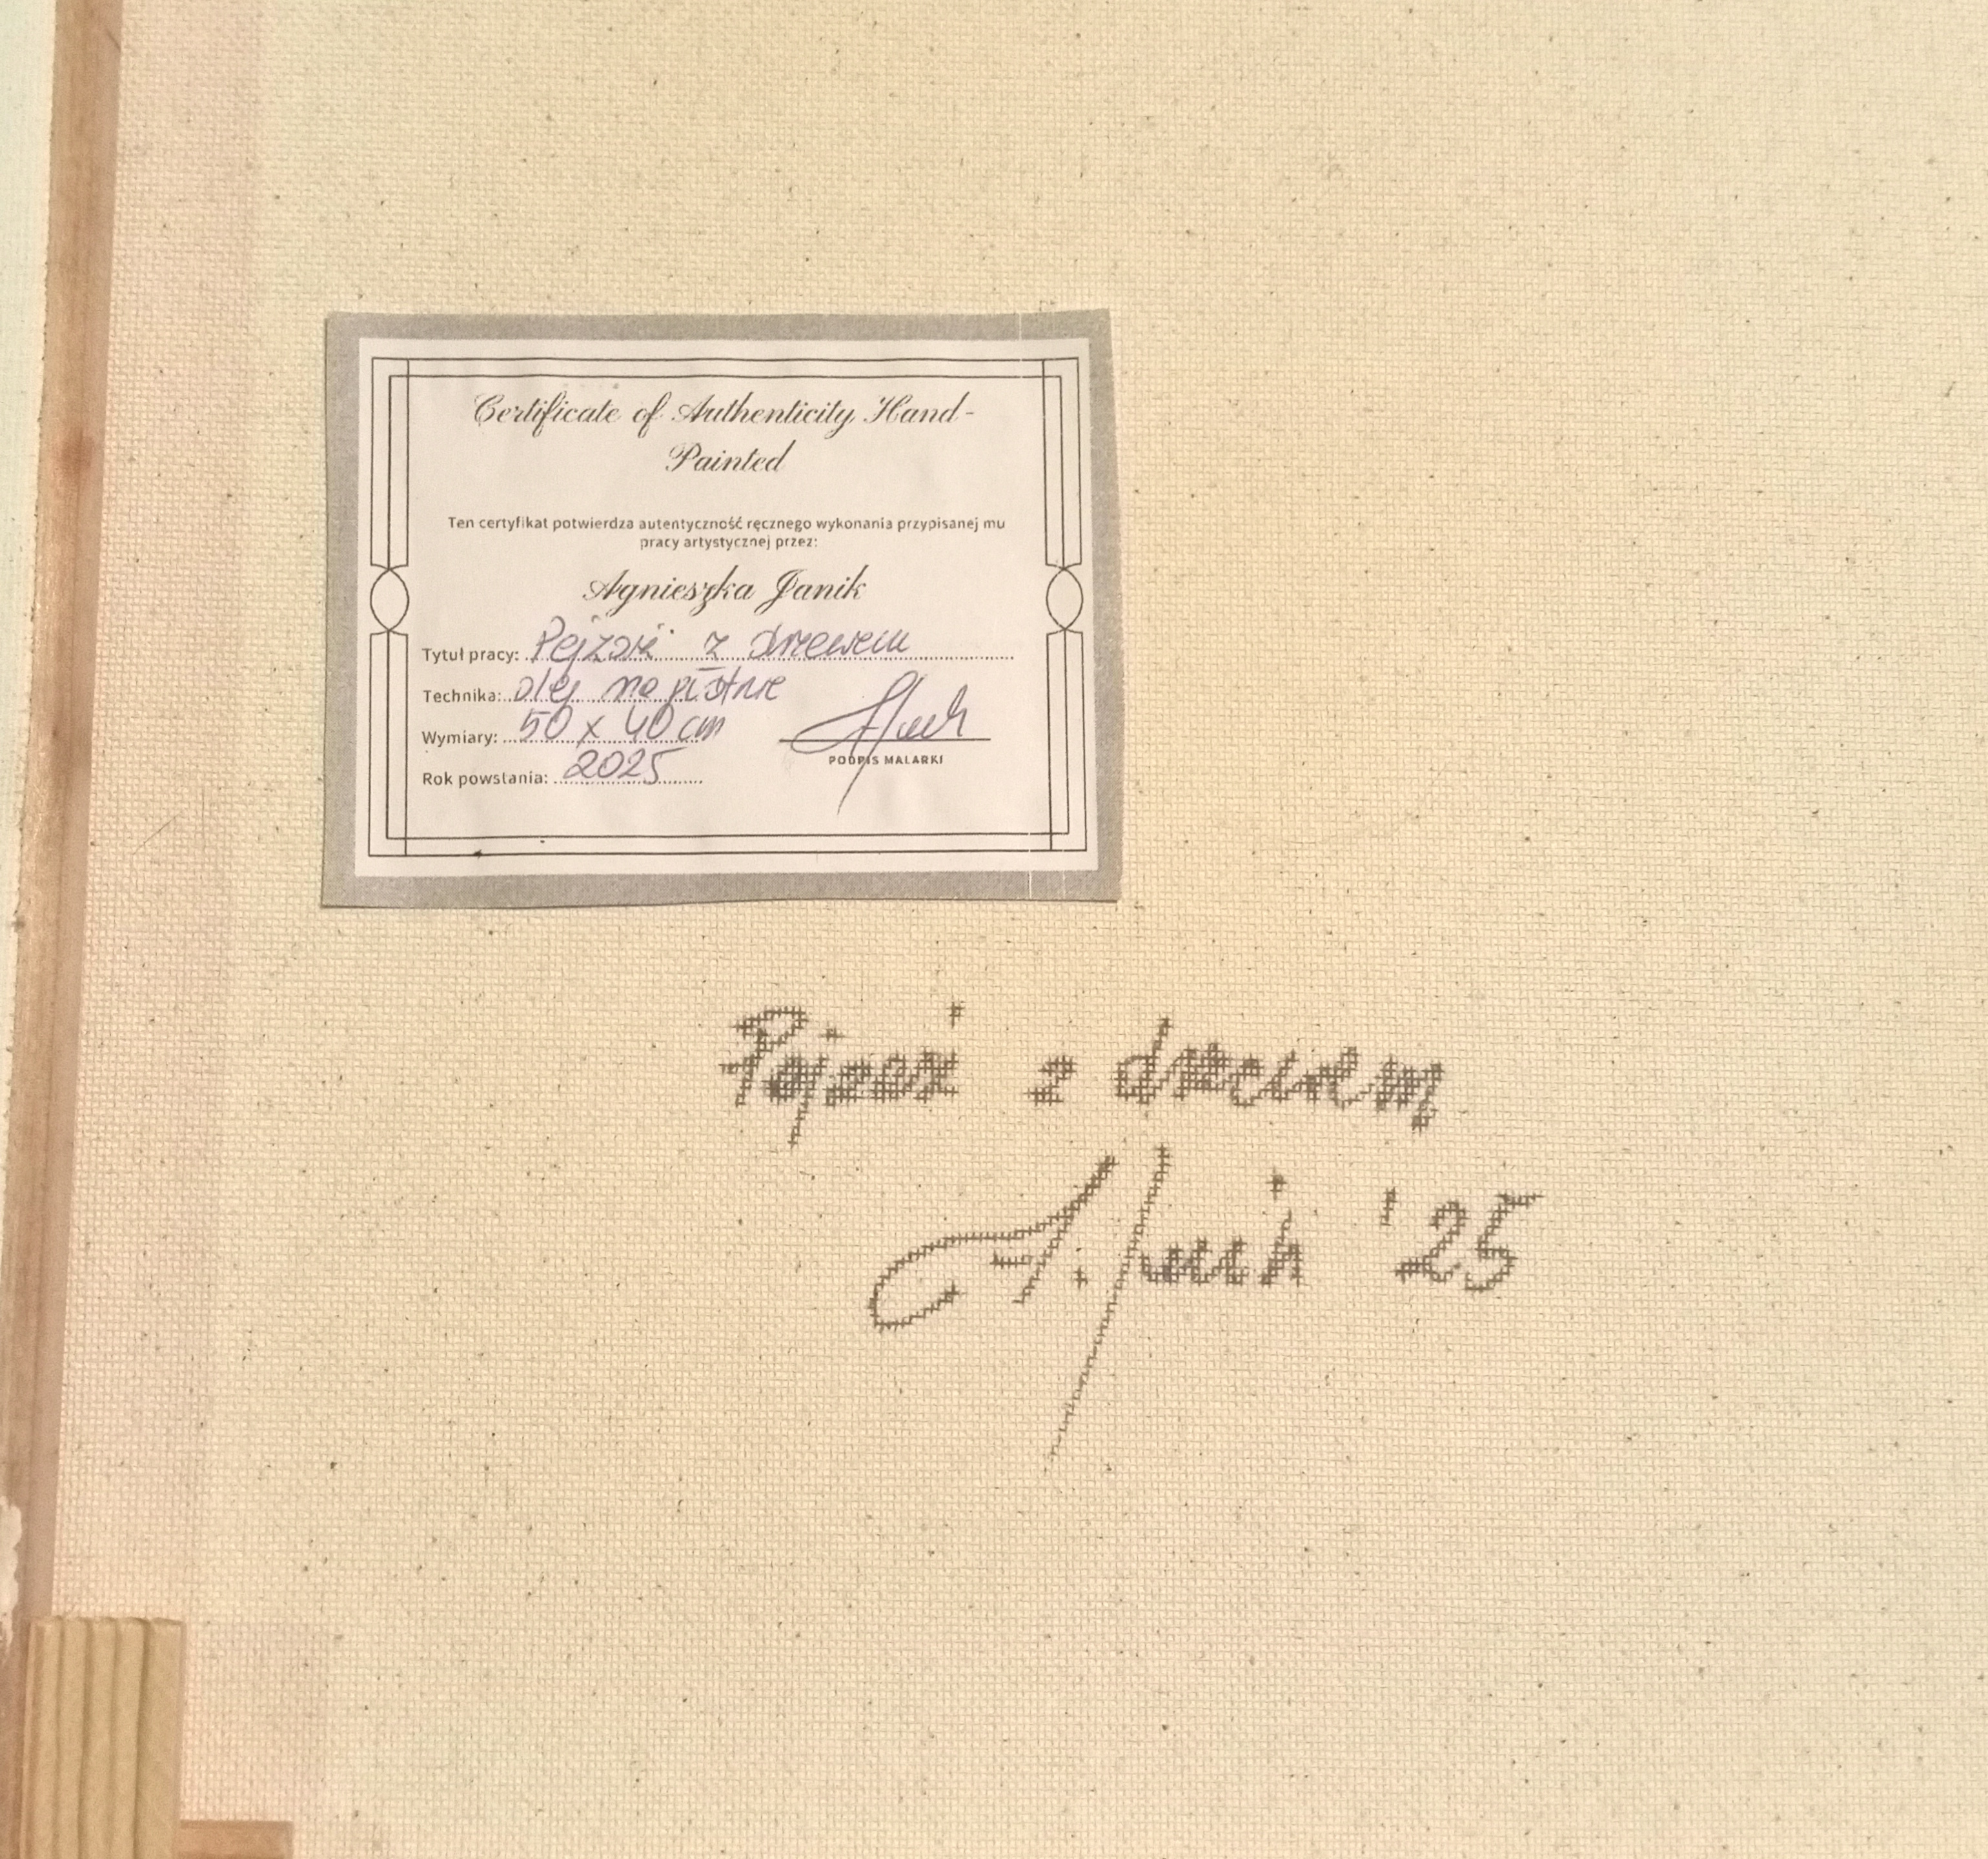 Certificate of Authenticity Hand-
Painted
Ten certyfikat potwierdza autentyczność ręcznego wykonania przypisanej mu
pracy artystycznej przez:
Agnieszka Janik
Tytuł pracy: Pejzaż z drzewem
Technika: olej na płótnie
Wymiary: 50 x 40 cm
Rok powstania: 2025
PODPIS MALARKI
Pejzaż z drzewem
A. Janik '25